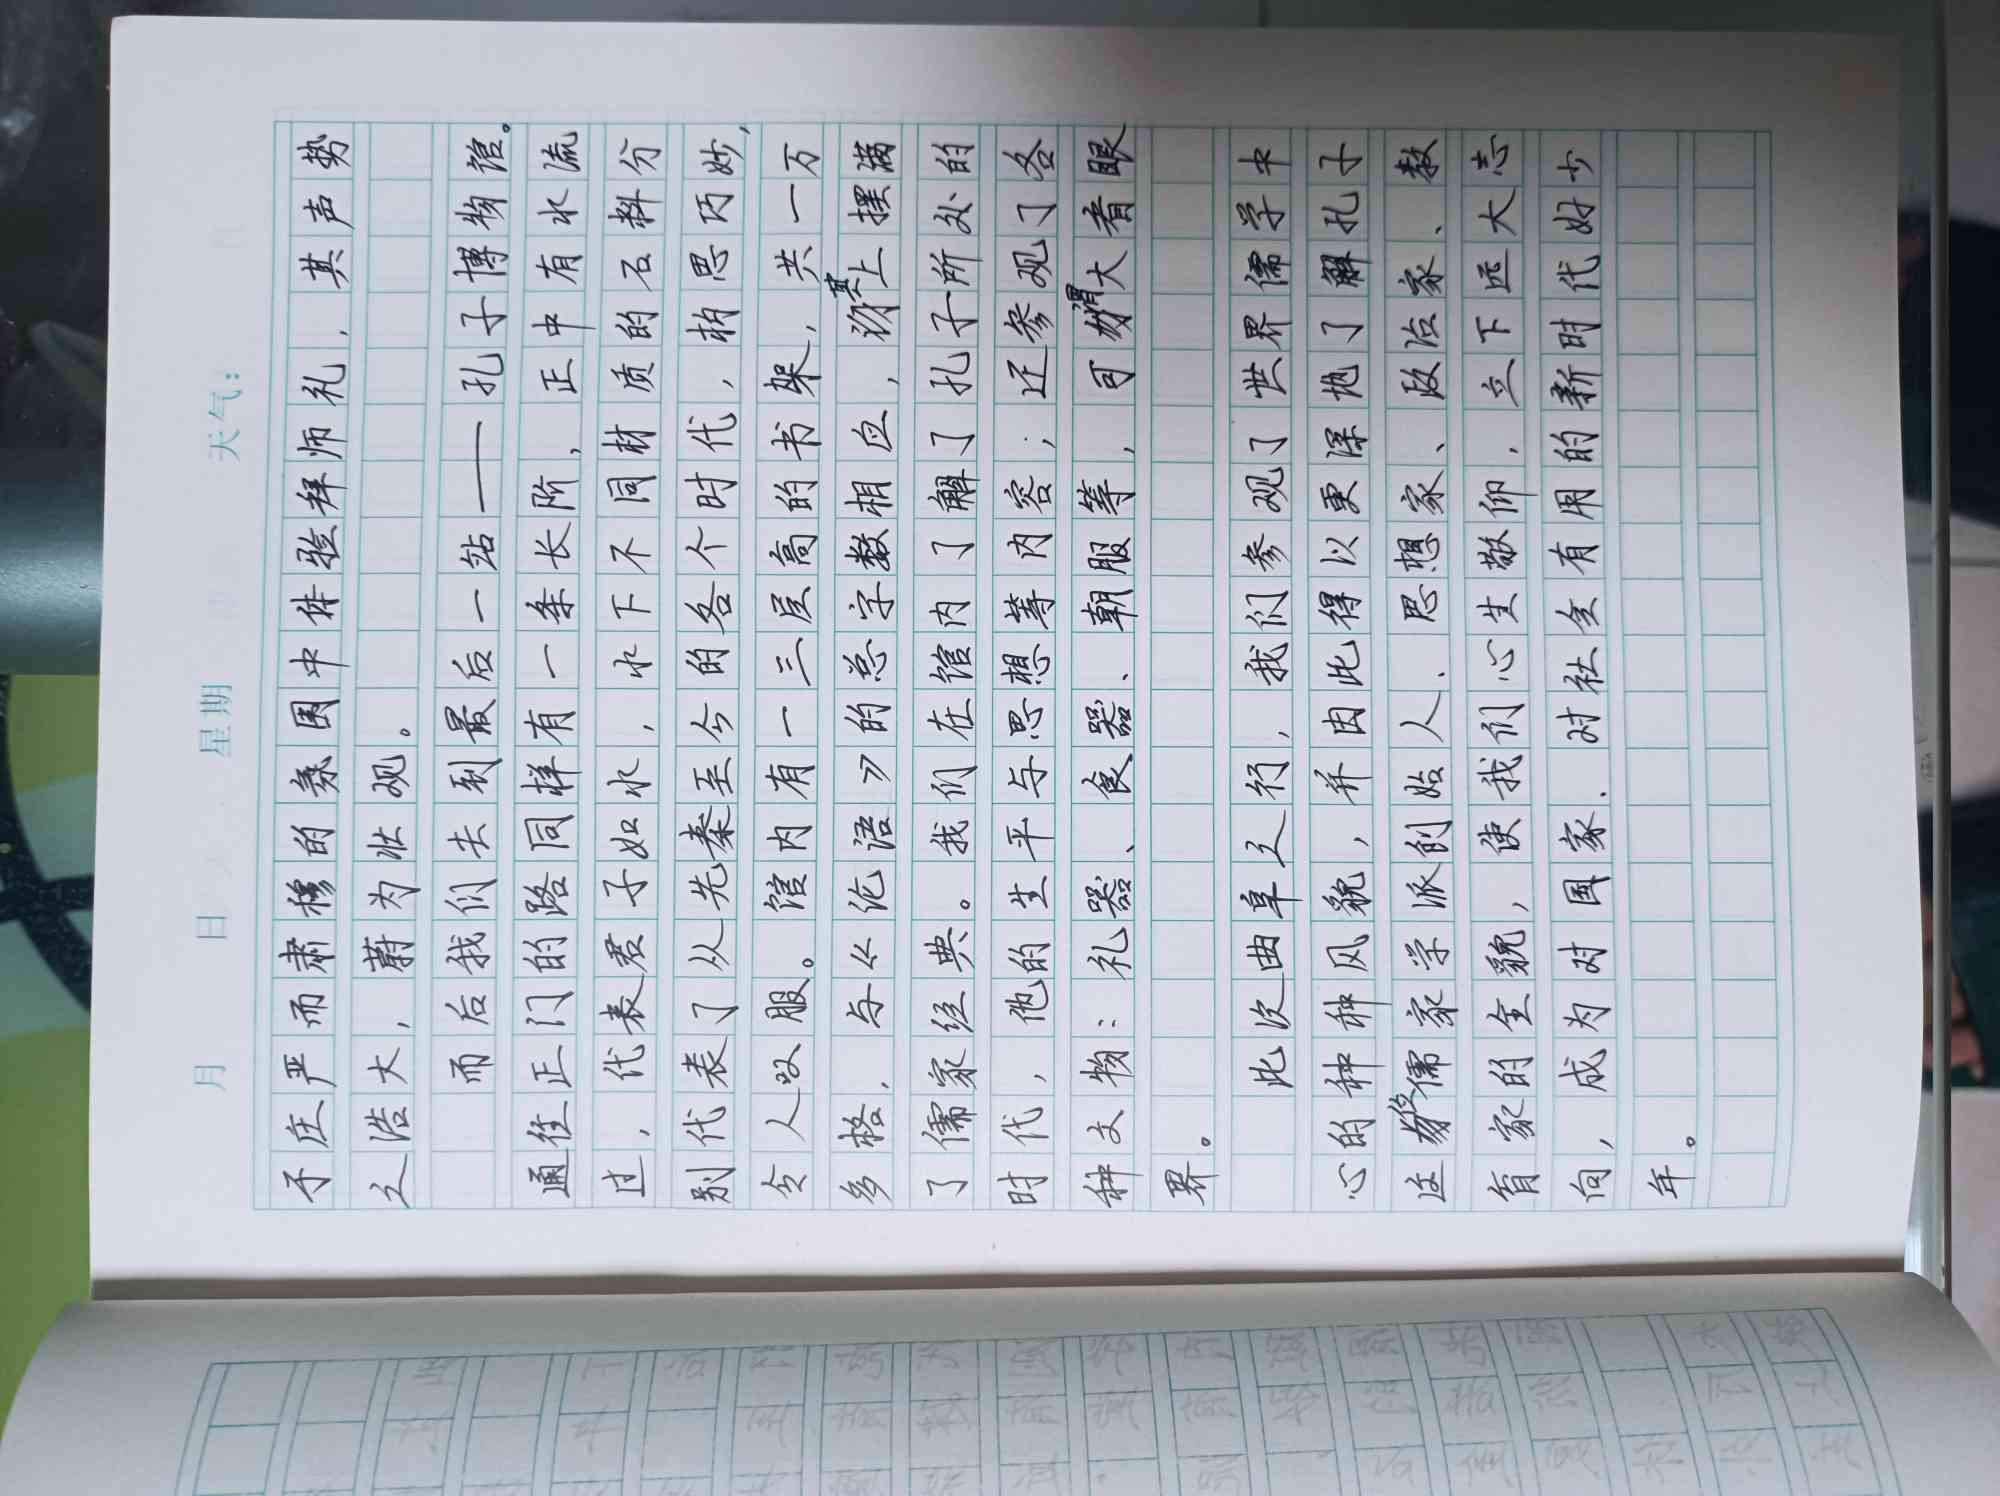 月 日 星期 天气：
于庄严而肃穆的氛围中体验拜师礼，其声势
之浩大，蔚为壮观。
而后我们去到最后一站——孔子博物馆。
通往正门的路同样有一条长阶，正中有水流
过，代表君子如水，水下不同材质的石料分
别代表了从先秦至今的各个时代，构思巧妙，
令人叹服。馆内有一三层高的书架，共一万
多格，与《论语》的总字数相应，其上摆满
了儒家经典。我们在馆内了解了孔子所处的
时代，他的生平与思想等内容；还参观了各
种文物：礼器、食器、朝服等，可谓大看眼
界。
此次曲阜之行，我们参观了世界儒学中
心的种种风貌，并因此得以更深地了解孔子
这位儒家学派创始人、思想家、政治家、教
育家的全貌，使我们心生敬仰，立下远大志
向，成为对国家、对社会有用的新时代好少
年。